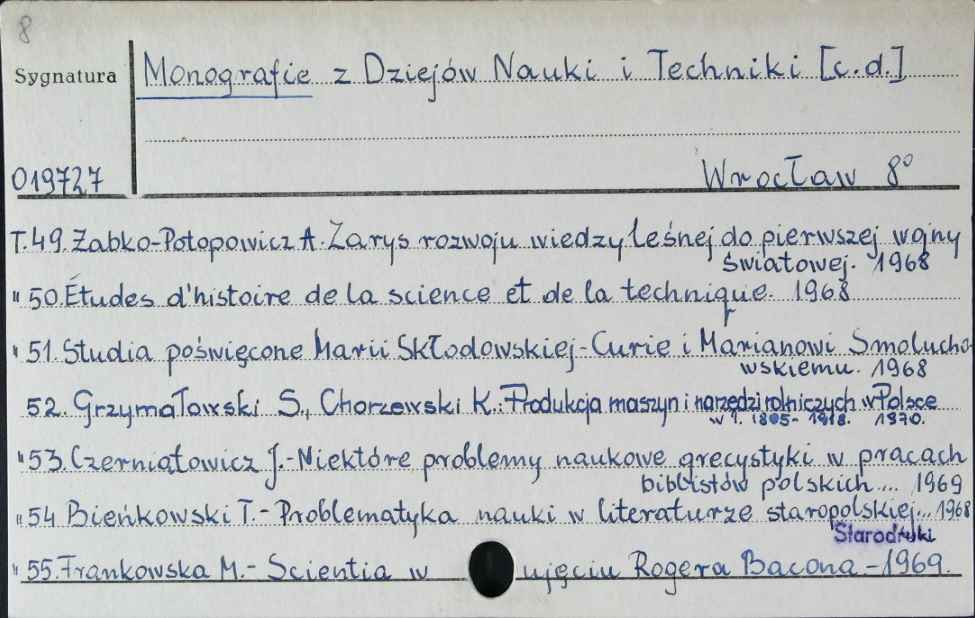 8
Sygnatura
Monografie z Dziejów Nauki i Techniki [c.d.]
019727
Wrocław 8°
T.49. Żabko-Potopowicz A. Zarys rozwoju wiedzy leśnej do pierwszej wojny
światowej. 1968
" 50. Études d'histoire de la science et de la technique. 1968
" 51. Studia poświęcone Marii Skłodowskiej-Curie i Marianowi Smolucho-
wskiemu. 1968
52. Grzymałowski S., Chorzewski K.: Produkcja maszyn i narzędzi rolniczych w Polsce
w l. 1805-1918. 1970.
" 53. Czerniatowicz J.- Niektóre problemy naukowe grecystyki w pracach
biblistów polskich... 1969
" 54 Bieńkowski T.- Problematyka nauki w literaturze staropolskiej... 1968
Starodruki
" 55. Frankowska M.- Scientia w ujęciu Rogera Bacona - 1969.